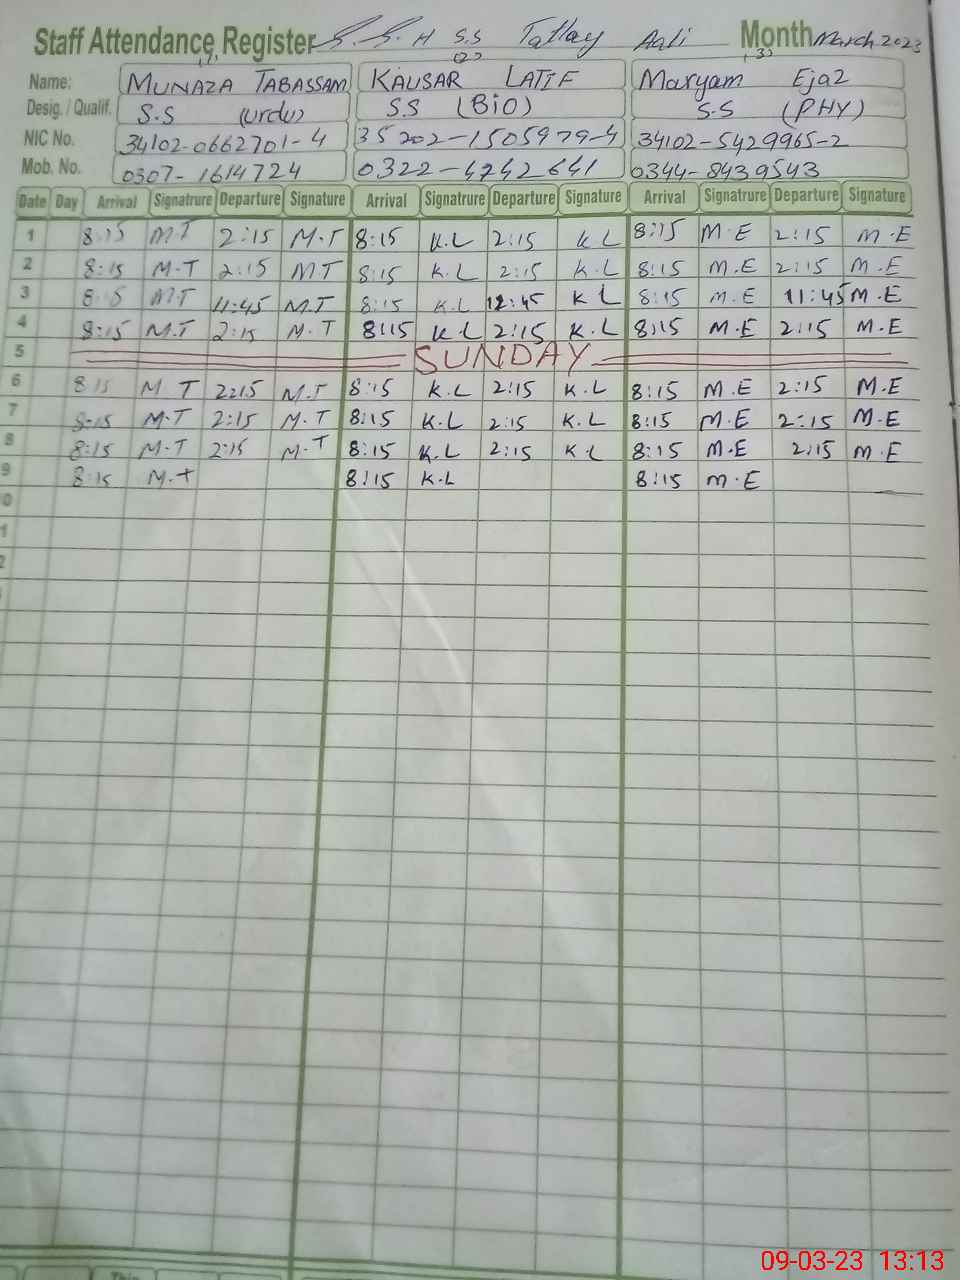 Staff Attendance Register G.G.H S.S Tatlay Aali Month March 2023
(1) (2) (3)
Name: MUNAZA TABASSAM KAUSAR LATIF Maryam Ejaz
Desig. / Qualif. S.S (urdu) SS (BiO) S.S (PHY)
NIC No. 34102-0662701-4 35202-1505979-4 34102-5429965-2
Mob. No. 0307-1614724 0322-4242641 0344-8439543
Date Day Arrival Signatrure Departure Signature Arrival Signatrure Departure Signature Arrival Signatrure Departure Signature
1 8:15 M.T 2:15 M.T 8:15 K.L 2:15 K.L 8:15 M.E 2:15 M.E
2 8:15 M.T 2:15 M.T 8:15 K.L 2:15 K.L 8:15 M.E 2:15 M.E
3 8:15 M.T 11:45 M.T 8:15 K.L 12:45 K L 8:15 M.E 11:45 M.E
4 8:15 M.T 2:15 M.T 8:15 K L 2:15 K.L 8:15 M.E 2:15 M.E
5 SUNDAY
6 8:15 M.T 2:15 M.T 8:15 K.L 2:15 K.L 8:15 M.E 2:15 M.E
7 8:15 M.T 2:15 M.T 8:15 K.L 2:15 K.L 8:15 M.E 2:15 M.E
8 8:15 M.T 2:15 M.T 8:15 K.L 2:15 K.L 8:15 M.E 2:15 M.E
9 8:15 M.T 8:15 K.L 8:15 M.E
0
1
2
This
09-03-23 13:13